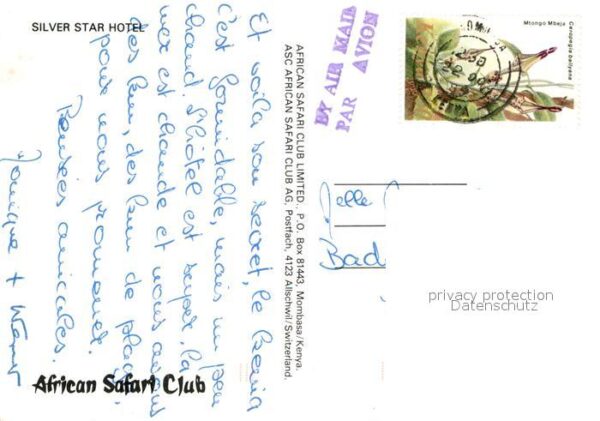 SILVER STAR HOTEL
Et voilà son secret, le Kenia
c'est formidable, mais un peu
chaud. L'hôtel est super, la
mer est chaude et nous avons
des km, des km de plage,
pour nous promener.
Pensées amicales.
Monique +
African Safari Club
AFRICAN SAFARI CLUB LIMITED., P.O. Box 81443, Mombasa/Kenya.
ASC AFRICAN SAFARI CLUB AG, Postfach, 4123 Allschwil/Switzerland.
BY AIR MAIL
PAR AVION
Mtongo Mbeja
Ceropegia ballyana
KENYA
Melle
Bad
privacy protection
Datenschutz